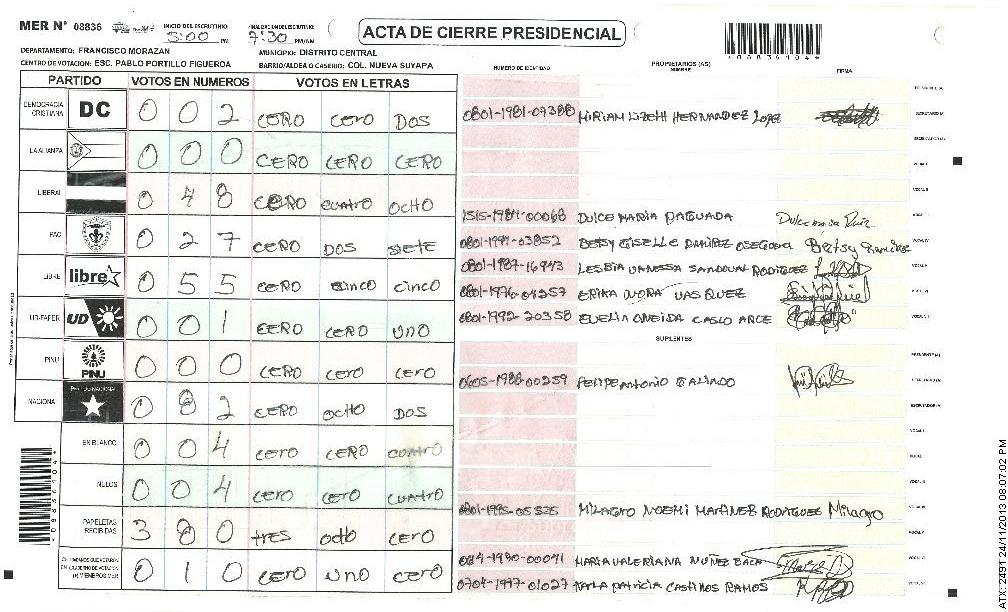 MER N° 08836 INICIO DEL ESCRUTINIO: 5:00 PM FINALIZACION DEL ESCRUTINIO: 7:30 PM/AM ACTA DE CIERRE PRESIDENCIAL
DEPARTAMENTO: FRANCISCO MORAZAN MUNICIPIO: DISTRITO CENTRAL
CENTRO DE VOTACION: ESC. PABLO PORTILLO FIGUEROA BARRIO/ALDEA O CASERIO: COL. NUEVA SUYAPA
*08836104*
PARTIDO VOTOS EN NUMEROS VOTOS EN LETRAS
DEMOCRACIA CRISTIANA DC 0 0 2 CERO CERO DOS
LA ALIANZA 0 0 0 CERO CERO CERO
LIBERAL 0 4 8 CERO CUATRO OCHO
PAC 0 2 7 CERO DOS SIETE
LIBRE libre 0 5 5 CERO CINCO CINCO
UD-FAPER UD 0 0 1 CERO CERO UNO
PINU PINU 0 0 0 CERO CERO CERO
NACIONAL PARTIDO NACIONAL 0 8 2 CERO OCHO DOS
EN BLANCO 0 0 4 CERO CERO CUATRO
NULOS 0 0 4 CERO CERO CUATRO
PAPELETAS RECIBIDAS 3 8 0 TRES OCHO CERO
0 1 0 CERO UNO CERO
*08836104*
NUMERO DE IDENTIDAD PROPIETARIOS (AS) NOMBRE FIRMA
0801-1981-09388 MIRIAM LIZETH HERNANDEZ LOPEZ
1515-1984-00068 DULCE MARIA PAGUADA Dulce maria
BETSY GISELLE RAMIREZ OSEGUERA Betsy Ramirez
0801-1987-16943 LESBIA VANESSA SANDOVAL RODRIGUEZ
ERIKA VASQUEZ
0801-1992-20358 EVELIA ONEIDA ARCE
SUPLENTES
0605-1988-00259 FELIPE ANTONIO GALINDO
MILAGRO NOEMI MARTINEZ RODRIGUEZ Milagro
MARIA VALERIANA NUÑEZ BACA
0704-1997-01027 KARLA PATRICIA RAMOS
ATX-2491 24/11/2013 08:07:02 PM